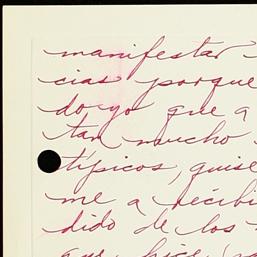 manifestar
cias porque
do yo que a
tan mucho
típicos, quise
me a recibi
dido de los
que hice